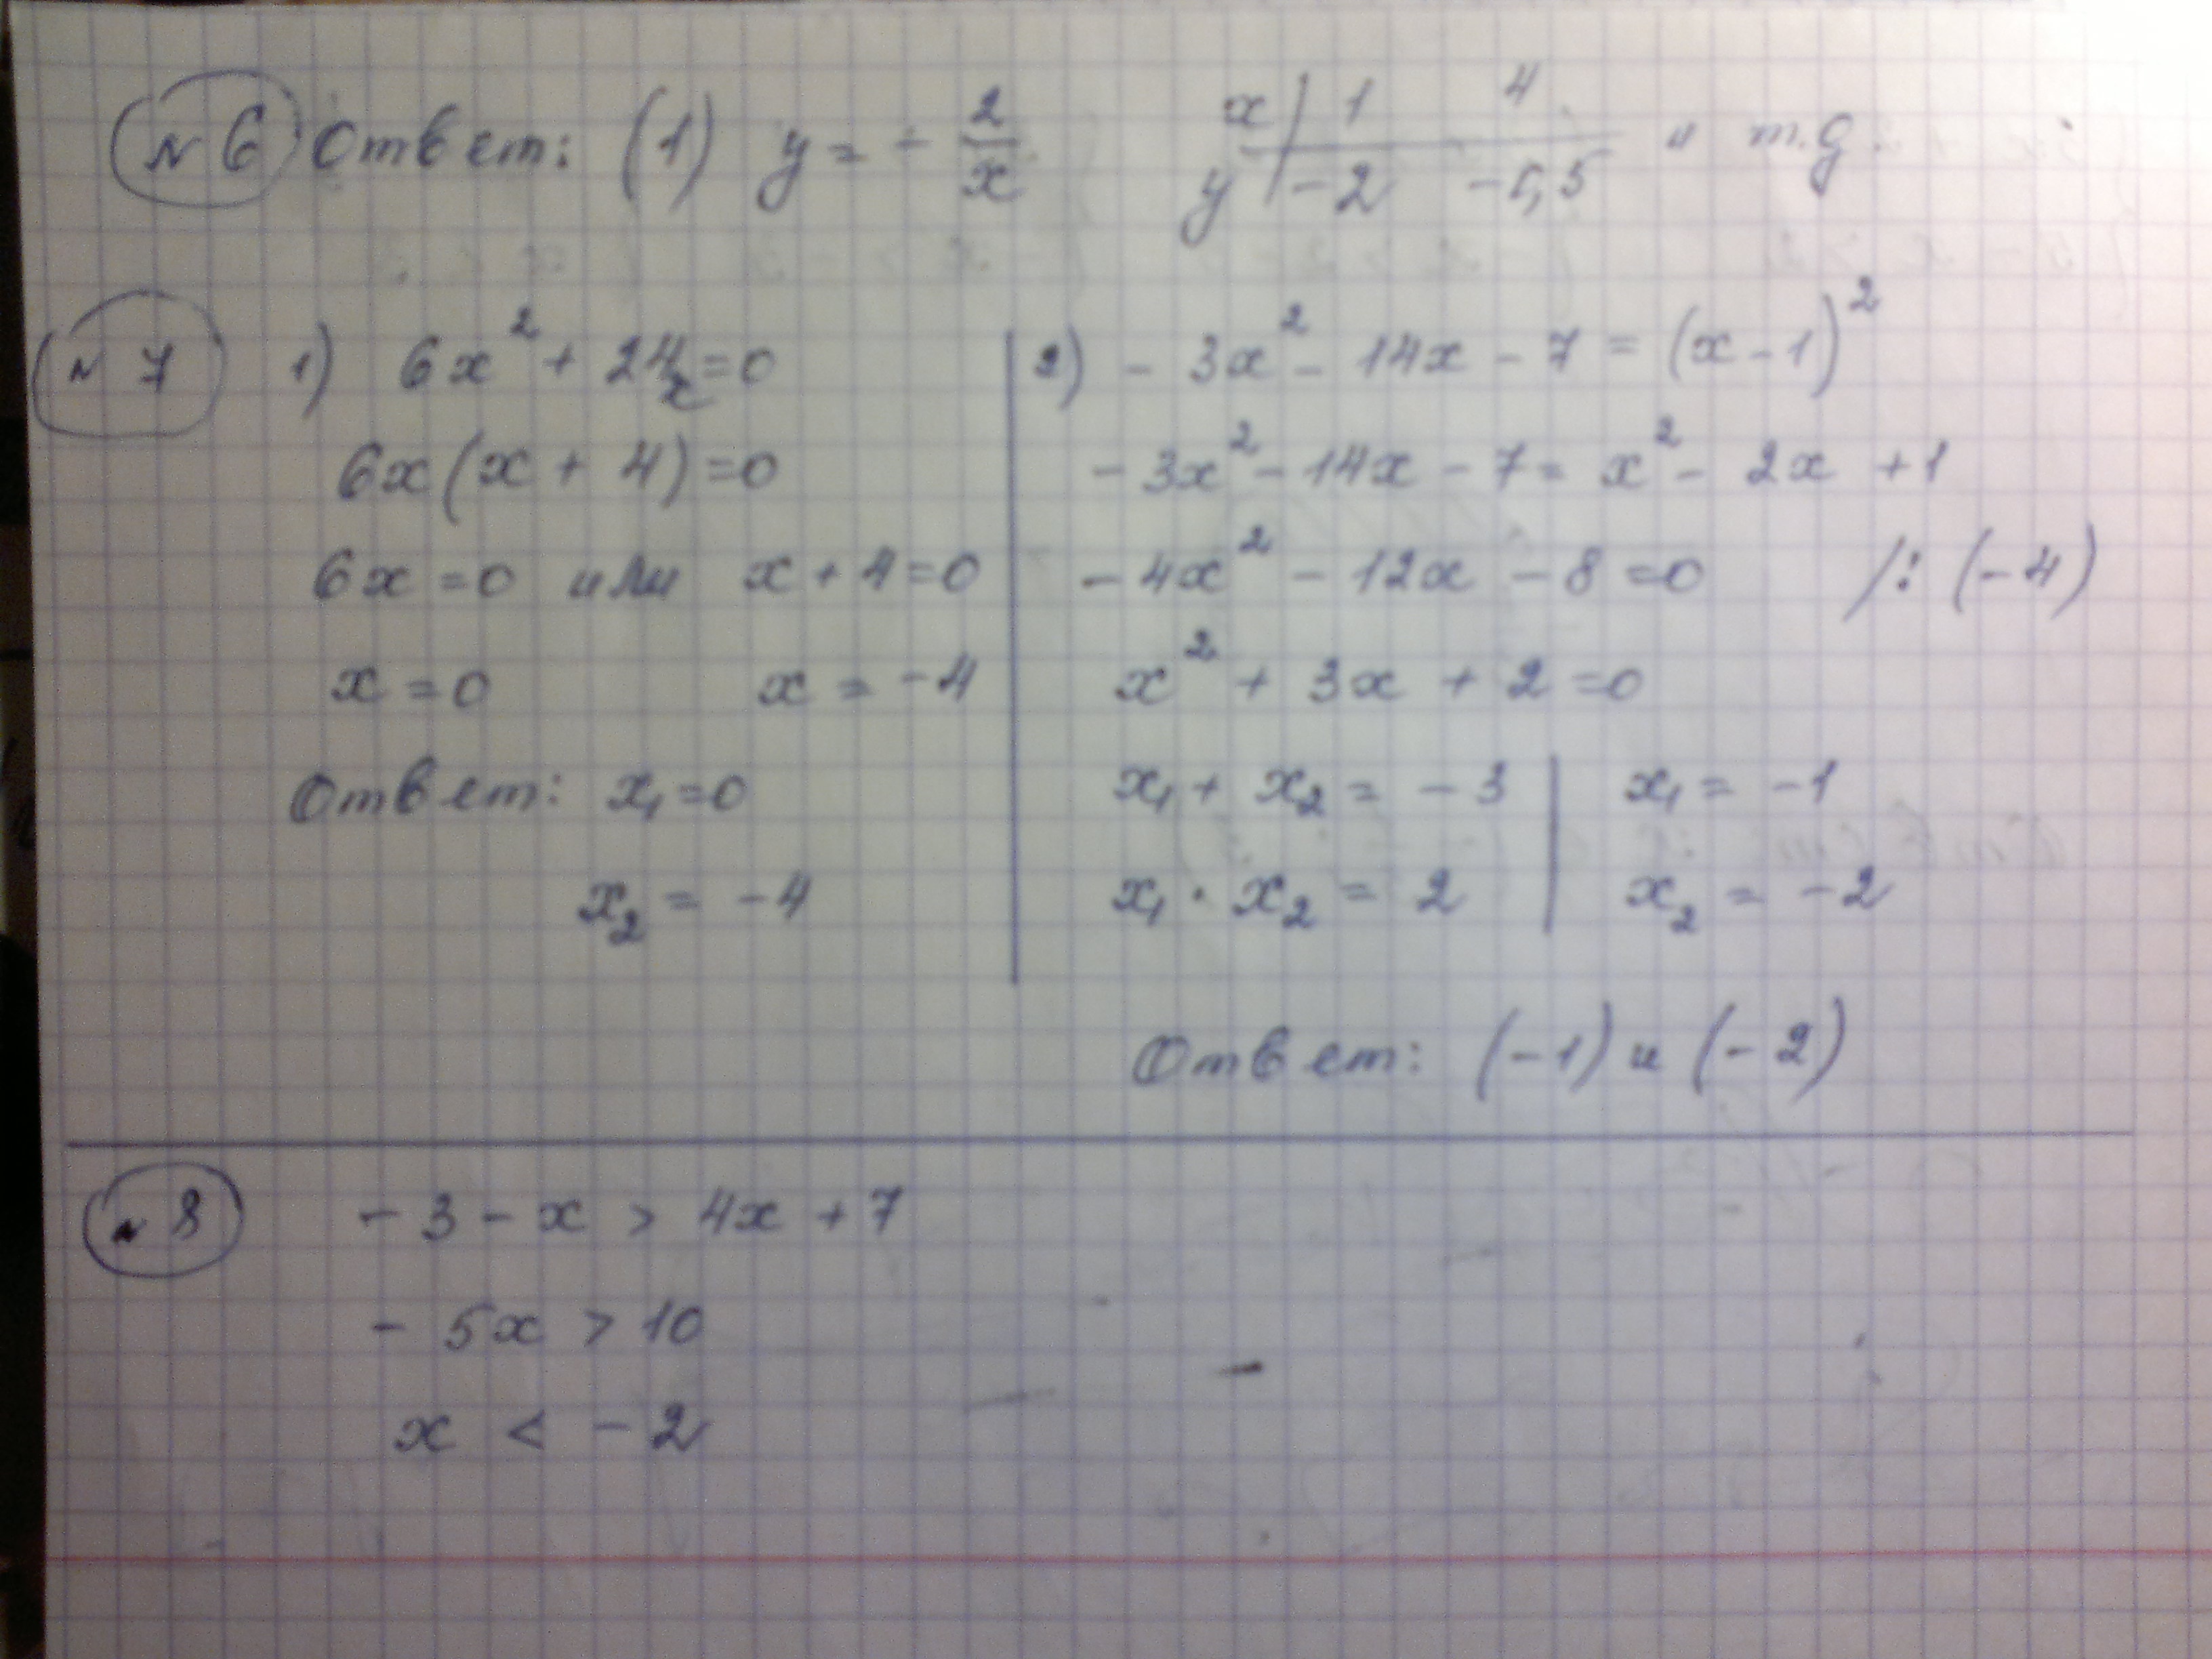 № 6 Ответ: (1) y = - 2/x
x | 1 4
y | -2 -0,5 и т.д.
№ 7 1) 6x² + 24x = 0
6x(x + 4) = 0
6x = 0 или x + 4 = 0
x = 0 x = -4
Ответ: x₁ = 0
x₂ = -4
2) -3x² - 14x - 7 = (x - 1)²
-3x² - 14x - 7 = x² - 2x + 1
-4x² - 12x - 8 = 0 /: (-4)
x² + 3x + 2 = 0
x₁ + x₂ = -3 | x₁ = -1
x₁ · x₂ = 2 | x₂ = -2
Ответ: (-1) и (-2)
№ 8 -3 - x > 4x + 7
-5x > 10
x < -2